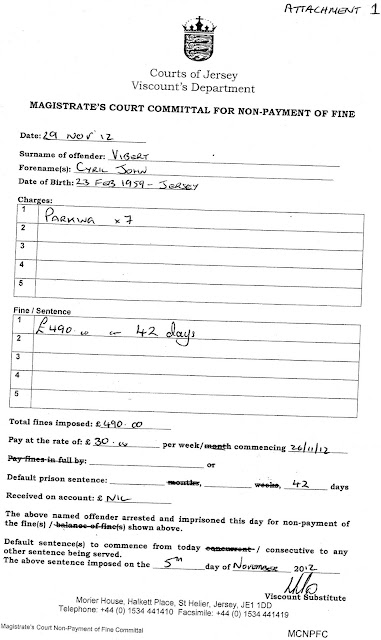 ATTACHMENT 1
Courts of Jersey
Viscount's Department
MAGISTRATE'S COURT COMMITTAL FOR NON-PAYMENT OF FINE
Date: 29 NOV '12
Surname of offender: VIBERT
Forename(s): CYRIL JOHN
Date of Birth: 23 FEB 1959 - JERSEY
Charges:
1 PARKING x 7
2
3
4
5
Fine / Sentence
1 £490.00 or 42 days
2
3
4
5
Total fines imposed: £490.00
Pay at the rate of: £ 30.00 per week/month commencing 26/11/12
Pay fines in full by: or
Default prison sentence: months, weeks, 42 days
Received on account: £ NIL
The above named offender arrested and imprisoned this day for non-payment of
the fine(s) / balance of fine(s) shown above.
Default sentence(s) to commence from today concurrent / consecutive to any
other sentence being served.
The above sentence imposed on the 5TH day of NOVEMBER 2012
Viscount Substitute
Morier House, Halkett Place, St Helier, Jersey, JE1 1DD
Telephone: +44 (0) 1534 441400 Facsimile: +44 (0) 1534 441419
Magistrate's Court Non-Payment of Fine Committal
MCNPFC